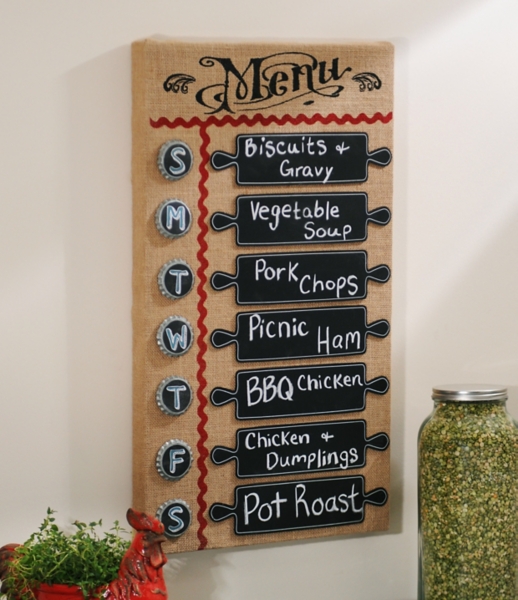 Menu
S
Biscuits &
Gravy
M
Vegetable
Soup
T
Pork
Chops
W
Picnic
Ham
T
BBQ Chicken
F
Chicken &
Dumplings
S
Pot Roast